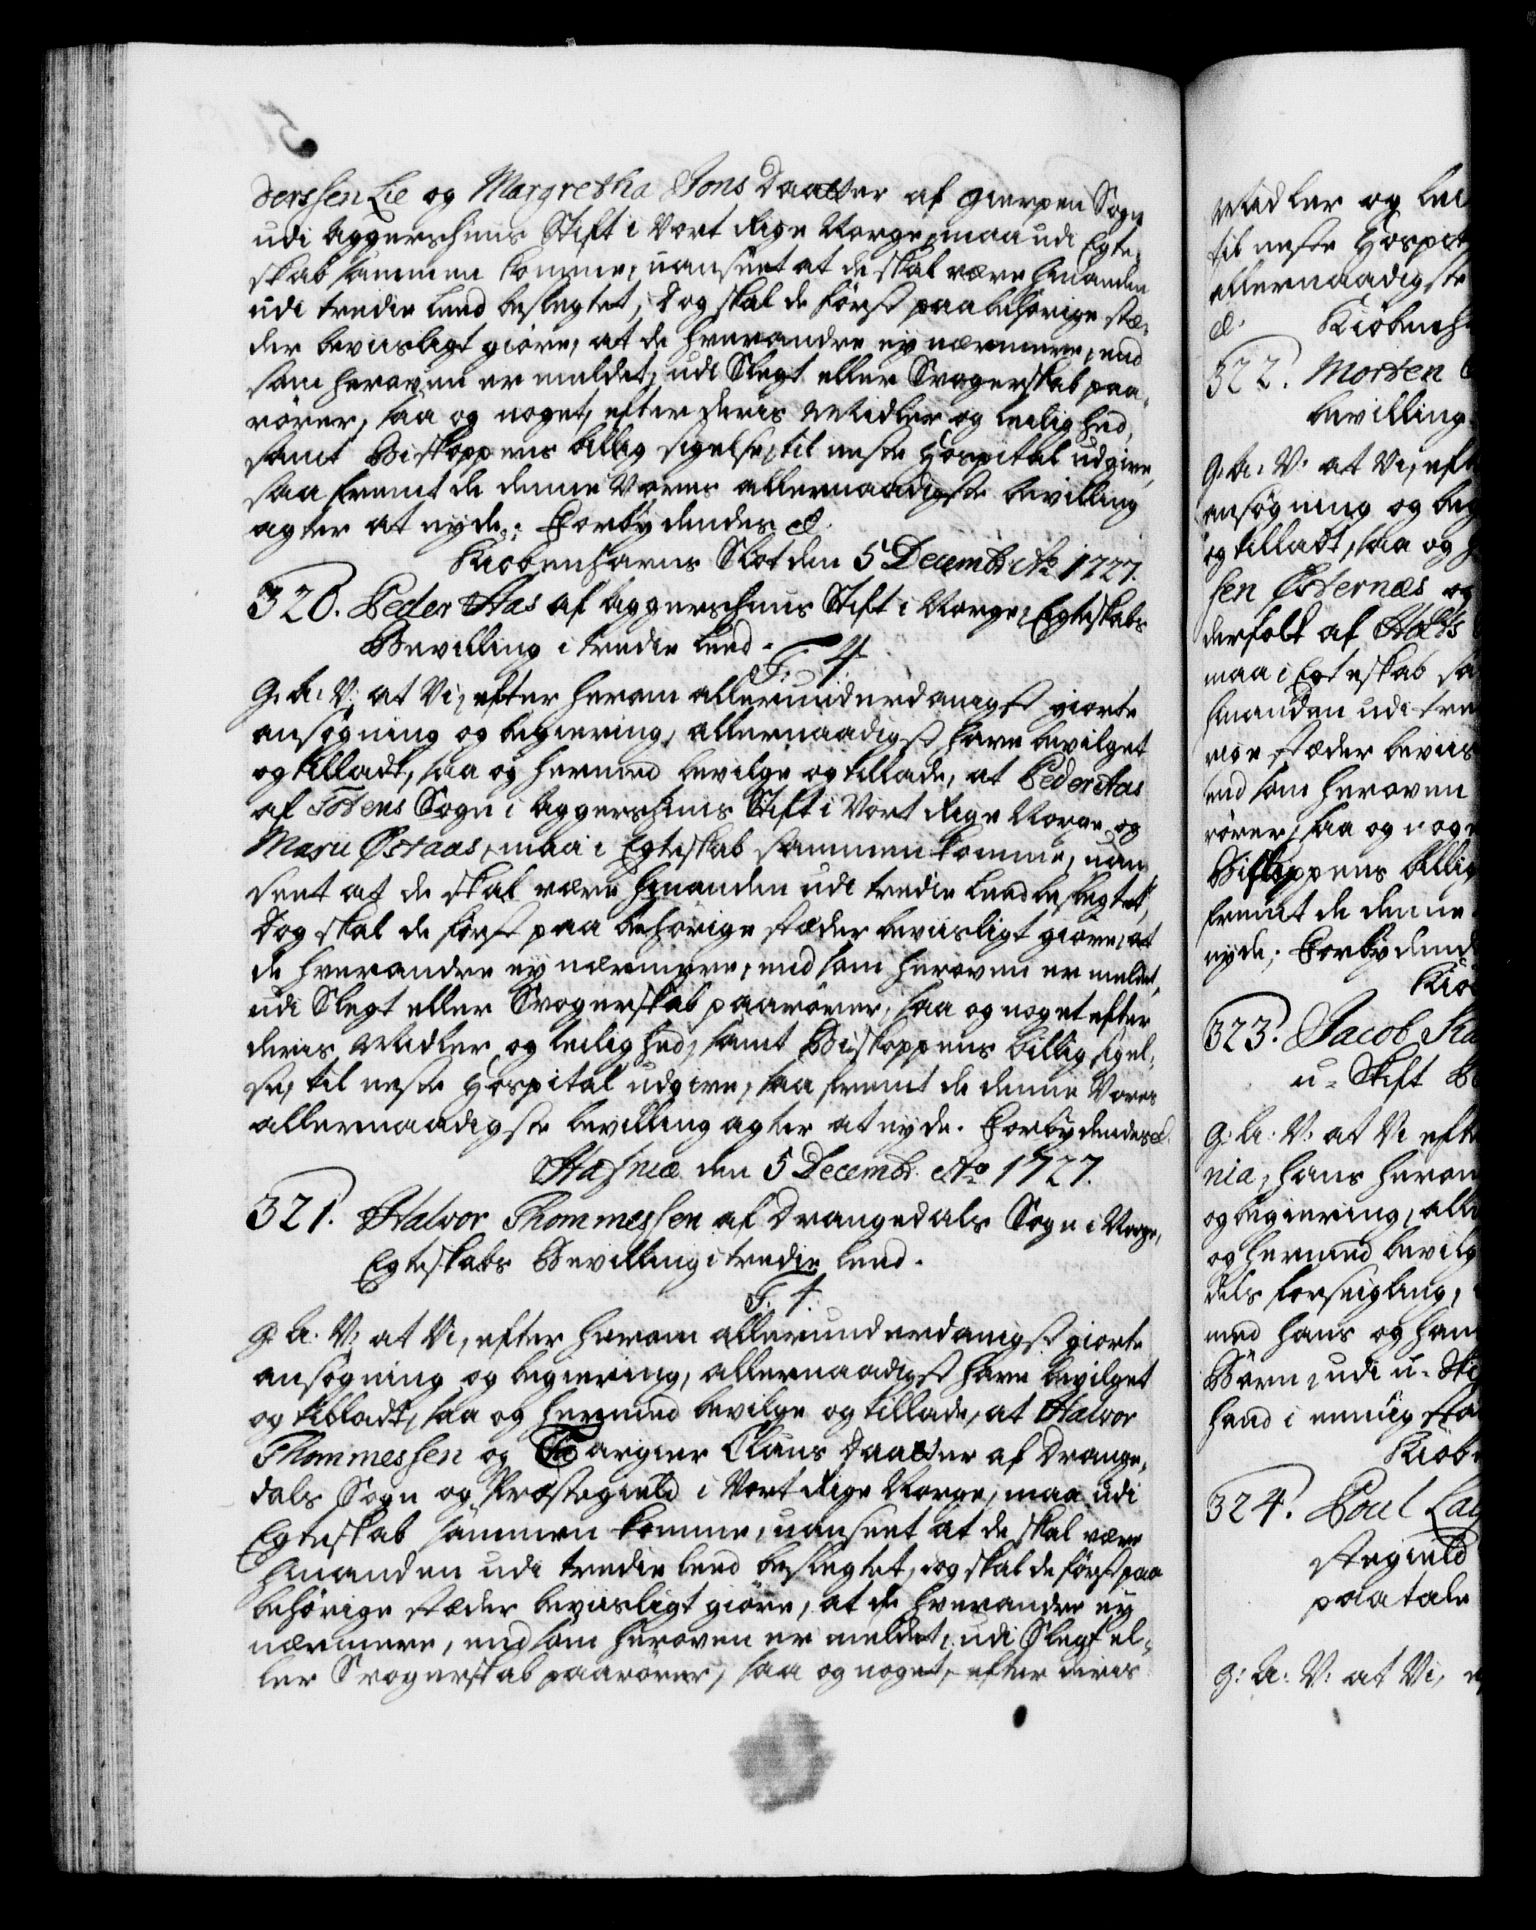 derssen Lie og Margretha Jons Daatter af Gierpen Sogn
udi Aggershuus Stift i Vort Rige Norge, maa udi Egte-
skab sammen komme, uanseet at de skal være hinanden
udi tredie leed beslegtet, Dog skal de først paa behörige stæ-
der beviisligt giöre, at de hverandre ey nærmere, end
som heroven er meldet, udi Slegt eller Svogerskab paa-
rörer, saa og noget, efter deris Midler og leilighed,
samt Biskoppens billig sigelse, til neste Hospital udgive,
saa fremt de denne Vores allernaadigste bevilling
agter at nyde; Forbydendes &.
Kiöbenhavns Slot den 5 Decembr Ao 1727.
320. Peder Aas af Aggershuus Stift i Norge, Egteskabs
Bevilling i tredie leed.
F. 4.
G. A: V: at Vi, efter herom allerunderdanigst giorte
ansögning og begiering, allernaadigst have bevilget
og tilladt, saa og hermed bevilge og tillade, at Peder Aas
af Totens Sogn i Aggershuus Stift i Vort Rige Norge og
Marii Østaas, maa i Egteskab sammen komme, uan-
seet at de skal være hinanden udi tredie leed beslegtet,
Dog skal de först paa behörige stæder beviisligt giöre, at
de hverandre ey nærmere, end som heroven er meldet,
udi Slegt eller Svogerskab paarörer, saa og noget efter
deris Midler og leilighed, samt Biskoppens billig sigel-
se, til neste Hospital udgive, saa fremt de denne Vores
allernaadigste bevilling agter at nyde. Forbydendes &.
Hafniæ den 5 Decembr. Ao 1727.
321. Halvor Thommessen af Drangedals Sogn i Norge,
Egteskabs Bevilling i tredie leed.
F. 4.
G: A: V: at Vi, efter herom allerunderdanigst giorte
ansögning og begiering, allernaadigst have bevilget
og tilladt, saa og hermed bevilge og tillade, at Halvor
Thommessen og Targier Claus Daatter af Drange-
dals Sogn og Præstegield i Vort Rige Norge, maa udi
Egteskab sammen komme, uanseet at de skal være
hinanden udi tredie leed beslegtet, dog skal de först paa
behörige stæder beviisligt giöre, at de hverandre ey
nærmere, end som heroven er meldet, udi Slegt el-
ler Svogerskab paarörer, saa og noget, efter deris
Midler og lei
til neste Hospit
allernaadigste
&. Kiöbenh
322. Morten
bevilling
G: A: V: at Vi, eft
ansögning og beg
og tilladt, saa og h
sen Østernæs og
derfolk af Holts
maa i Egteskab sa
hinanden udi tre
rige stæder beviis
end som heroven
rörer, saa og noge
Biskoppens billig
fremt de denne
nyde; Forbydend
Kiö
323. Jacob
u- Skift B
G: A: V: at Vi eft
nia, hans herom
og begiering, alle
og hermed bevilg
dels forseigling,
med hans og han
Börn, udi u- Ski
hand i eenlig sta
Kiöb
324. Poul Lau
stegield
paatale
G: A: V: at Vi,